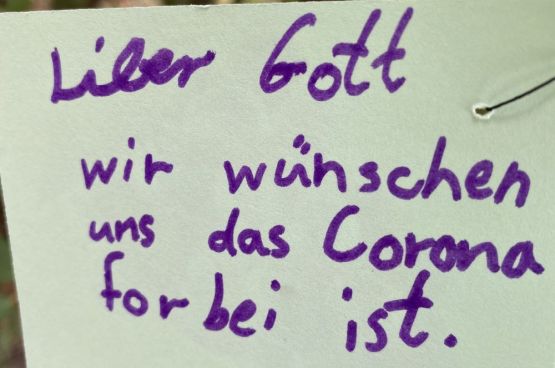 Liber Gott
wir wünschen
uns das Corona
forbei ist.